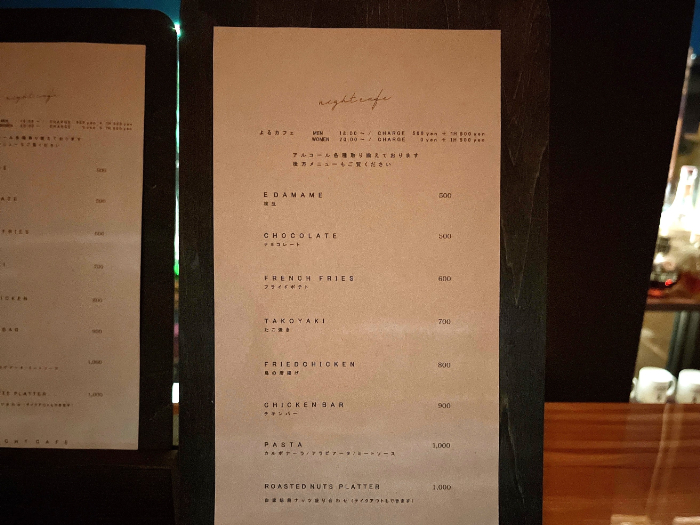 night cafe
よるカフェ MEN 14:00 ~ / CHARGE 500 yen + 1H 500 yen
WOMEN 20:00 ~ / CHARGE 0 yen + 1H 500 yen
アルコール各種取り揃えております
後方メニューもご覧ください
EDAMAME 500
枝豆
CHOCOLATE 500
チョコレート
FRENCH FRIES 600
フライドポテト
TAKOYAKI 700
たこ焼き
FRIEDCHICKEN 800
鳥の唐揚げ
CHICKEN BAR 900
チキンバー
PASTA 1,000
カルボナーラ/アラビアータ/ミートソース
ROASTED NUTS PLATTER 1,000